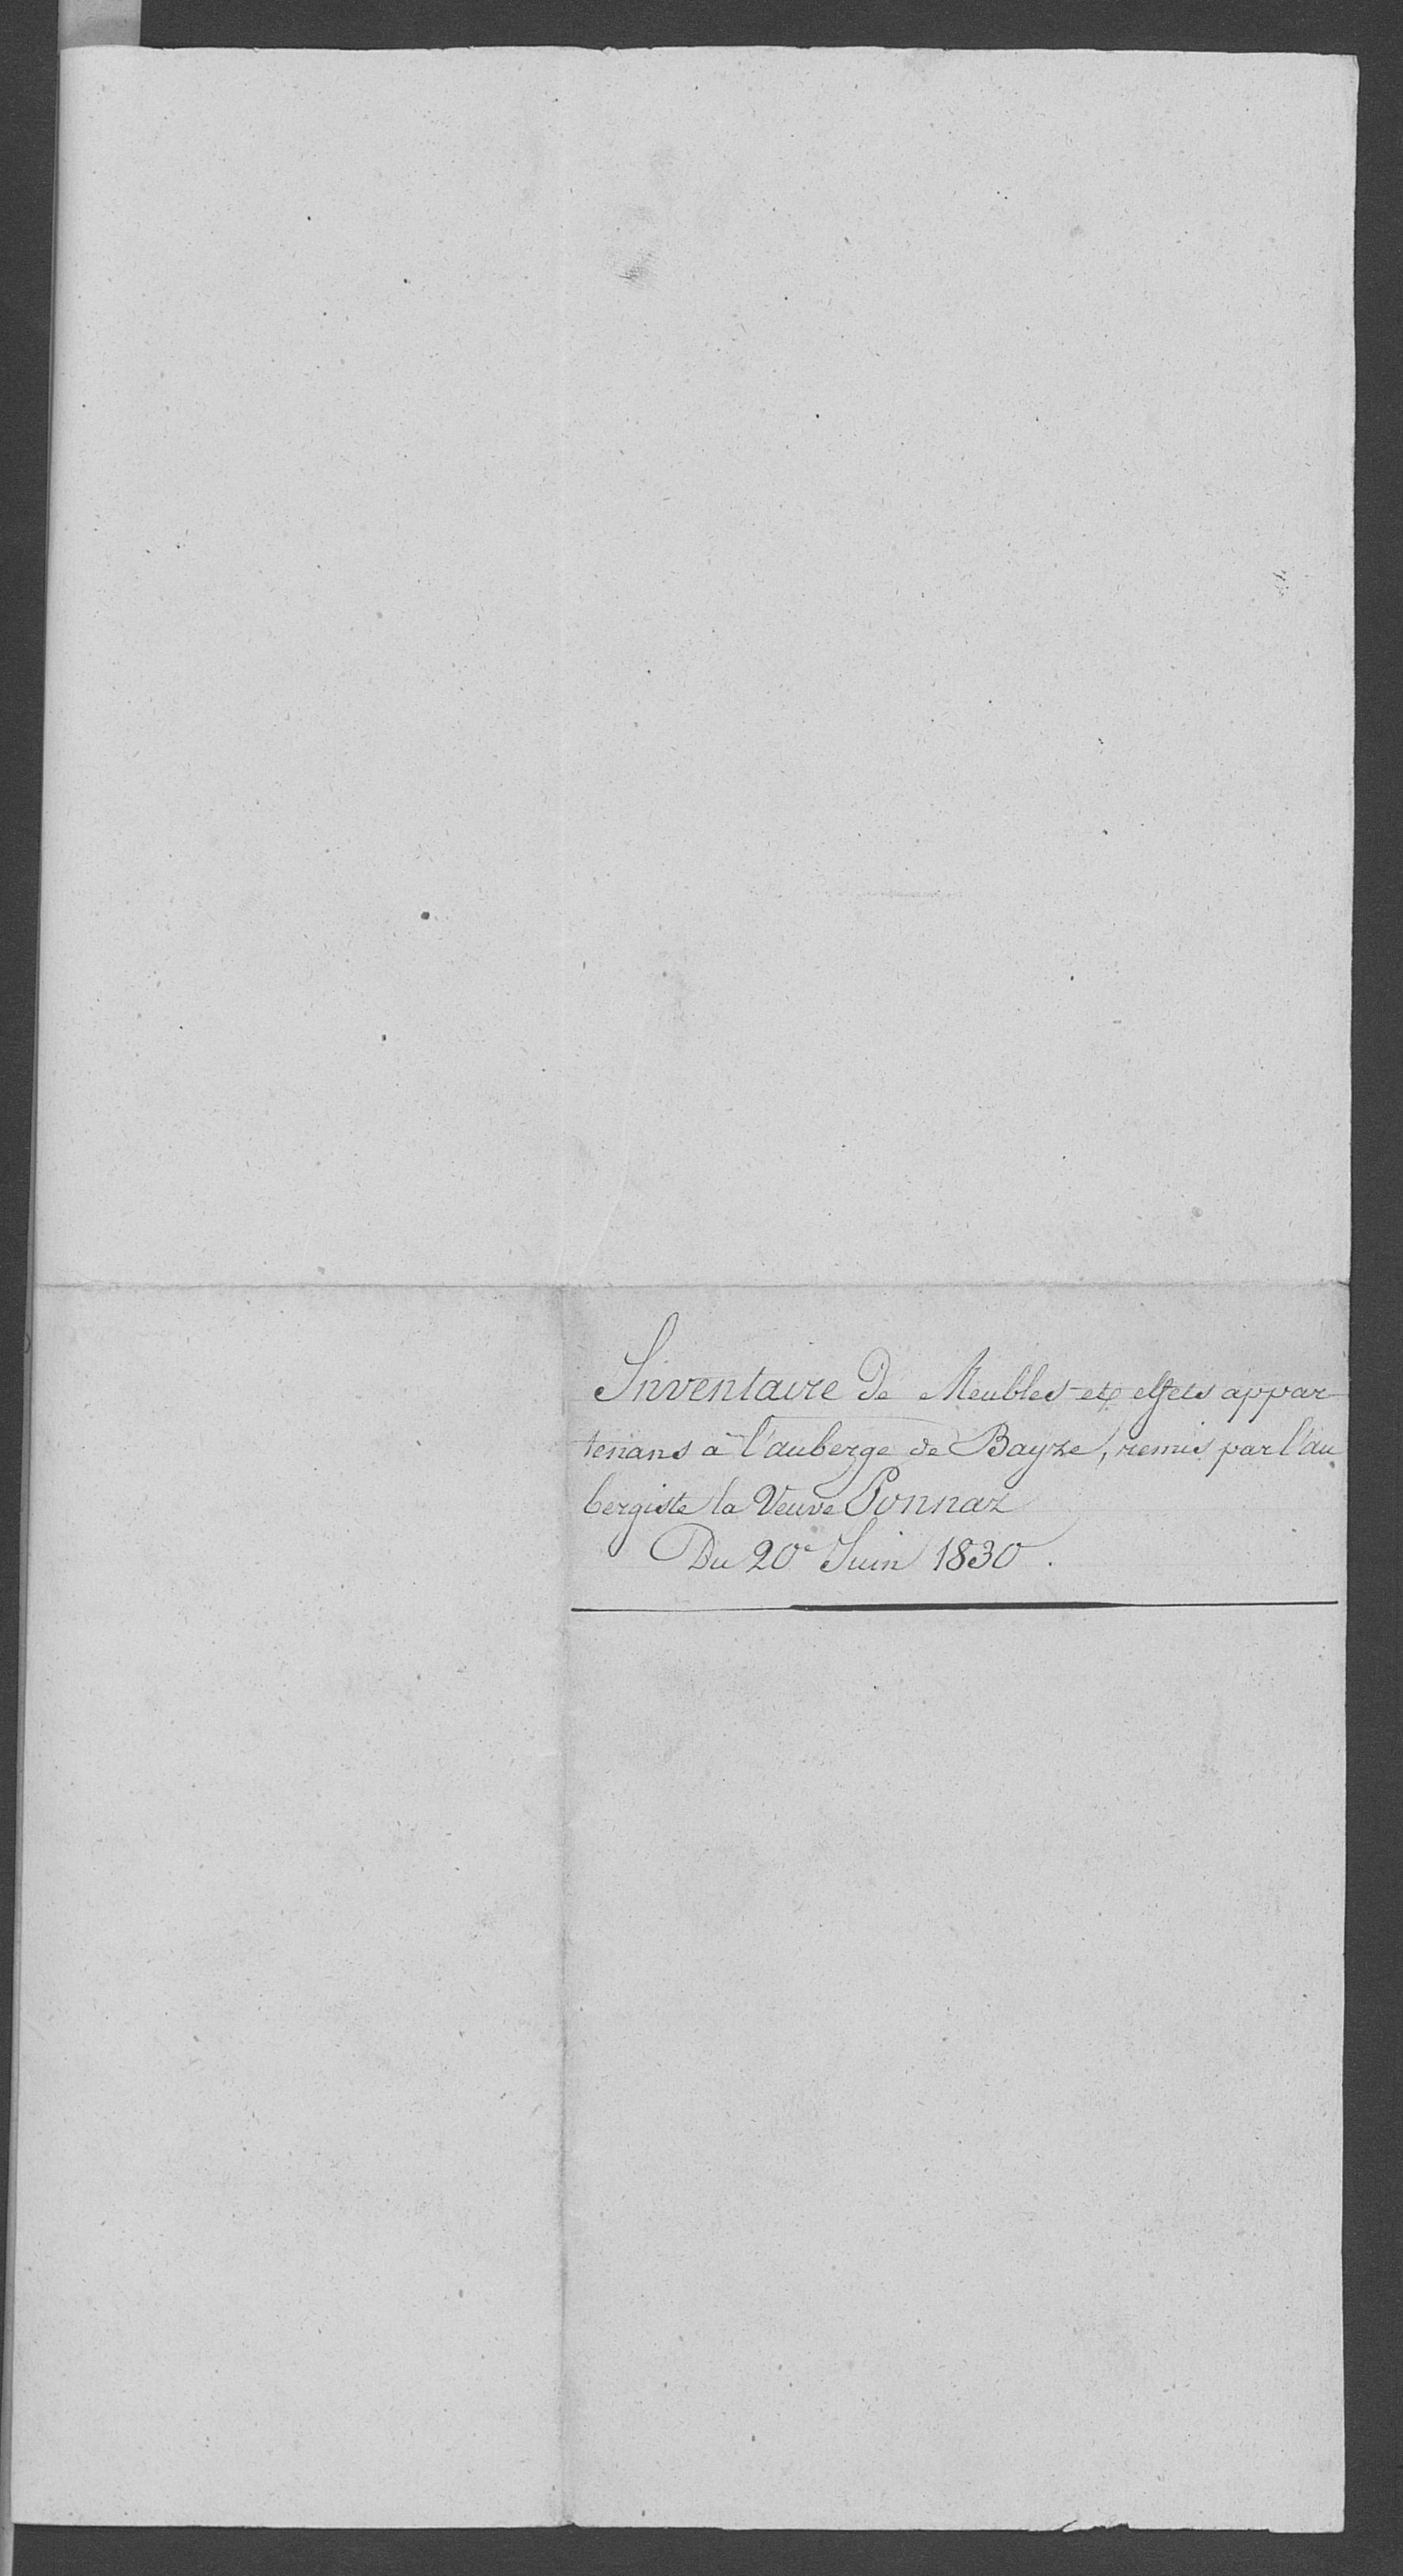 Inventaire de Meubles et effets appar-
tenans à l'auberge de Bayze, remis par l'au
bergiste la Veuve Ponnaz
Du 20e Juin 1830.